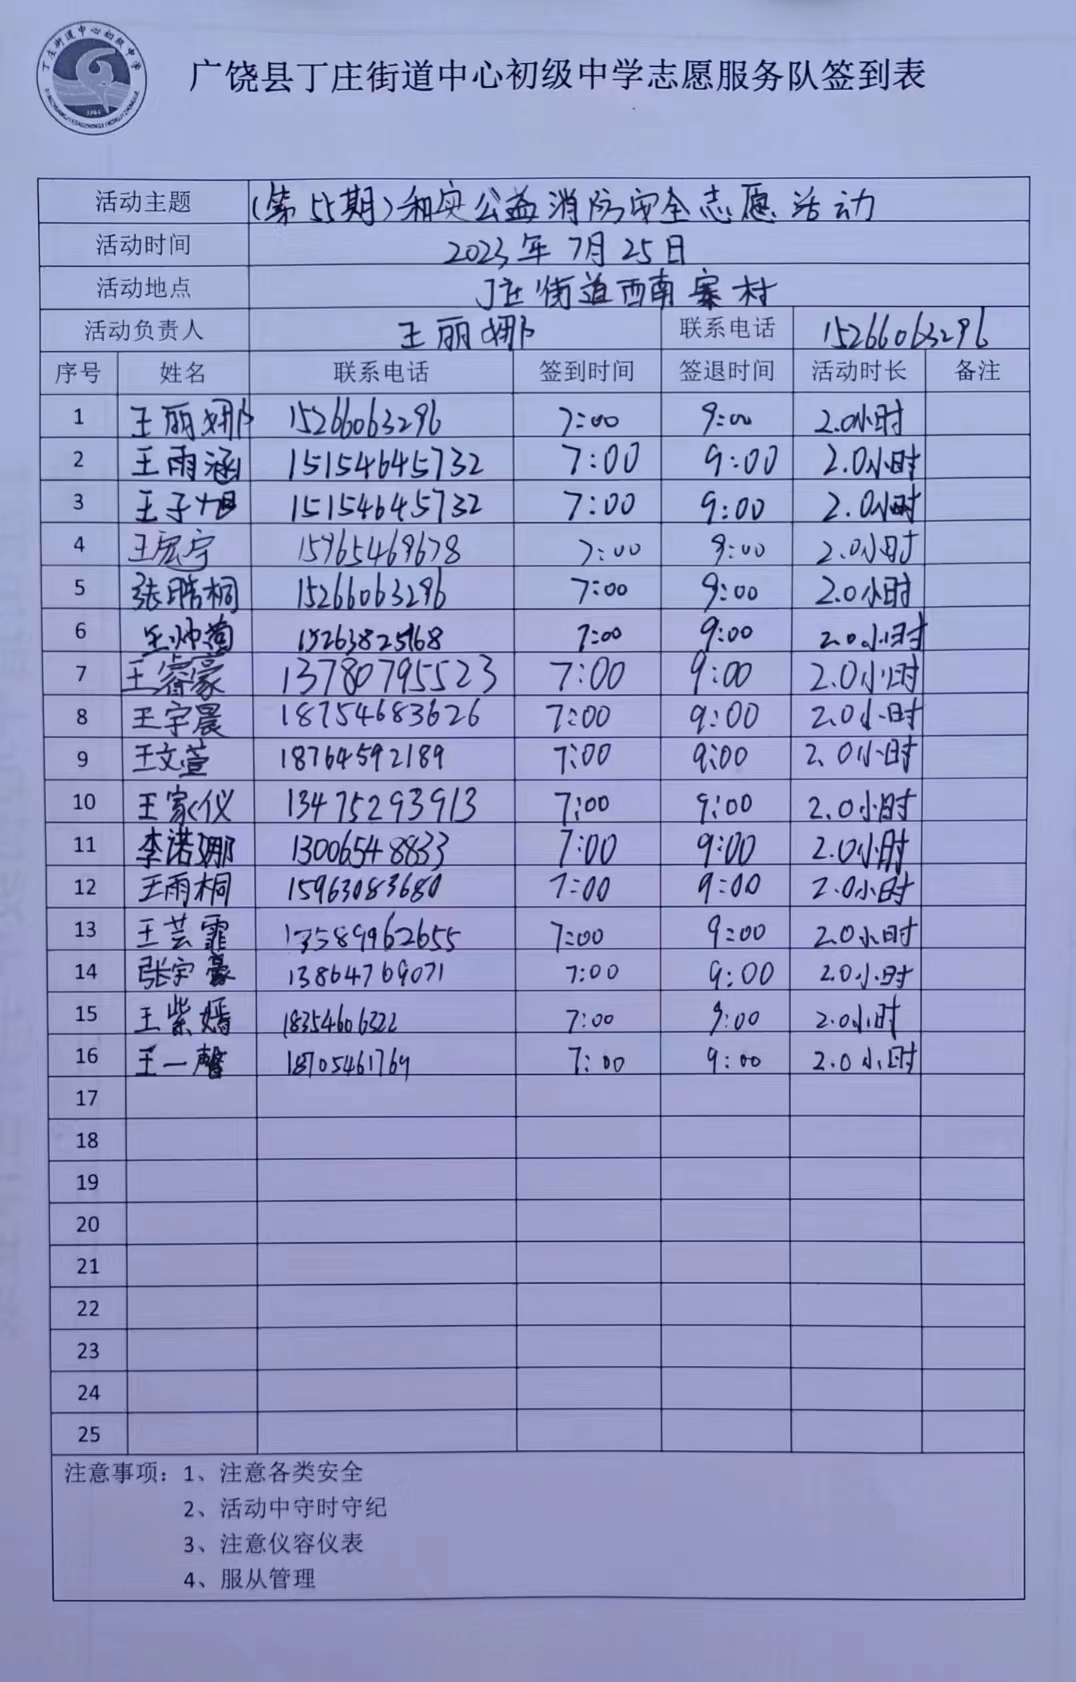 丁庄街道中心初级中学
1984
广饶县丁庄街道中心初级中学志愿服务队签到表
活动主题 (第55期)和奕公益消防安全志愿活动
活动时间 2023年7月25日
活动地点 丁庄街道西南寨村
活动负责人 王丽娜 联系电话 15266063296
序号 姓名 联系电话 签到时间 签退时间 活动时长 备注
1 王丽娜 15266063296 7:00 9:00 2.0小时
2 王雨涵 15154645732 7:00 9:00 2.0小时
3 王子旭 15154645732 7:00 9:00 2.0小时
4 王宏宇 15965469678 7:00 9:00 2.0小时
5 张皓桐 15266063296 7:00 9:00 2.0小时
6 王帅 15263825168 7:00 9:00 2.0小时
7 王睿豪 13780795523 7:00 9:00 2.0小时
8 王宇晨 18754683626 7:00 9:00 2.0小时
9 王文萱 18764592189 7:00 9:00 2.0小时
10 王家仪 13475293913 7:00 9:00 2.0小时
11 李诺娜 13006548833 7:00 9:00 2.0小时
12 王雨桐 15963083680 7:00 9:00 2.0小时
13 王芸霏 13589962655 7:00 9:00 2.0小时
14 张宇豪 13864769071 7:00 9:00 2.0小时
15 王紫嫣 18354606322 7:00 9:00 2.0小时
16 王一馨 18705461769 7:00 9:00 2.0小时
17
18
19
20
21
22
23
24
25
注意事项：1、注意各类安全
2、活动中守时守纪
3、注意仪容仪表
4、服从管理